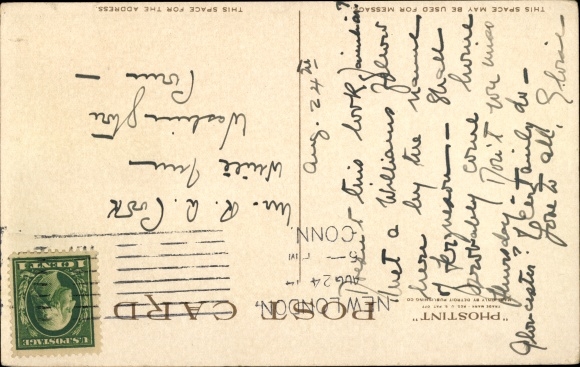 THIS SPACE MAY BE USED FOR MESSAGE.
THIS SPACE FOR THE ADDRESS.
POST CARD
"PHOSTINT"
TRADE MARK REG. U.S. PAT. OFF.
MADE ONLY BY DETROIT PUBLISHING CO.
Aug. 24th
Doesn't this look familiar?
Met a Williams fellow
here by the name
of Ferguson — Shall
probably come home
Thursday. Don't you miss
Gloucester? I certainly do —
Love to all,
NEW LONDON
AUG 24
5 - PM
CONN.
1 CENT 1
Mr. R. A. Cook
White Inn
Washington
Conn —